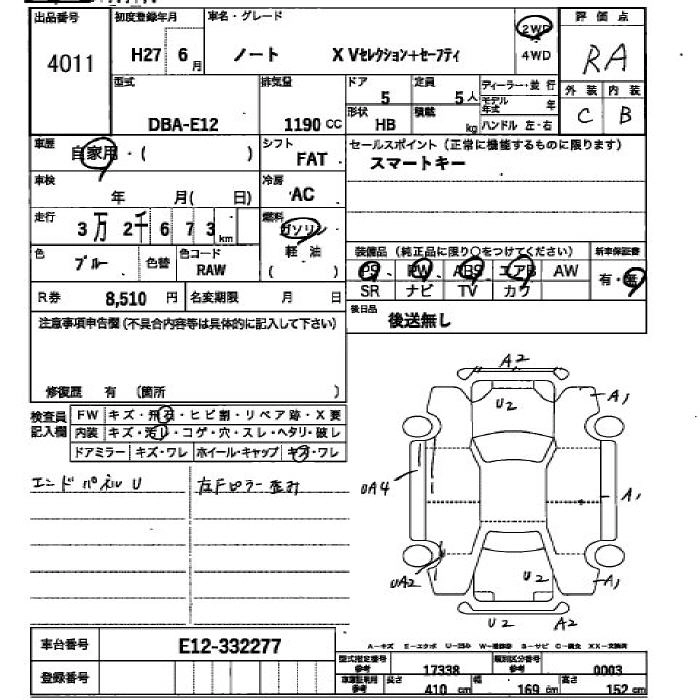 出品番号 初度登録年月 車名・グレード 評価点
4011 H27 6月 ノート X Vセレクション+セーフティ 2WD 4WD RA
型式 排気量 ドア 定員 ディーラー・並行 外装 内装
DBA-E12 1190 CC 5 5人 モデル年式 年 C B
形状 HB 積載 kg ハンドル 左・右
車歴 自家用・( ) シフト FAT セールスポイント(正常に機能するものに限ります)
スマートキー
車検 年 月( 日) 冷房 AC
走行 3万2千673km 燃料 ガソリン
軽油
( )
色 ブルー 色替 色コード RAW
装備品(純正品に限り○をつけてください) 新車保証書
PS PW ABS エアB AW 有・無
SR ナビ TV カワ
R券 8,510円 名変期限 月 日
後日品 後送無し
注意事項申告欄(不具合内容等は具体的に記入して下さい)
修復歴 有 (箇所 )
検査員記入欄 FW キズ・飛石・ヒビ割・リペア跡・X要
内装 キズ・汚れ・コゲ・穴・スレ・ヘタリ・破レ
ドアミラー キズ・ワレ ホイール・キャップ キズ・ワレ
エンドパネルU 左Fピラー歪み
A2
U2
A1
UA4
A1
UA2
U2
A1
U2 A2
車台番号 E12-332277
登録番号
型式指定番号 参考 17338 類別区分番号 参考 0003
参考 長さ 410 cm 幅 169 cm 高さ 152 cm